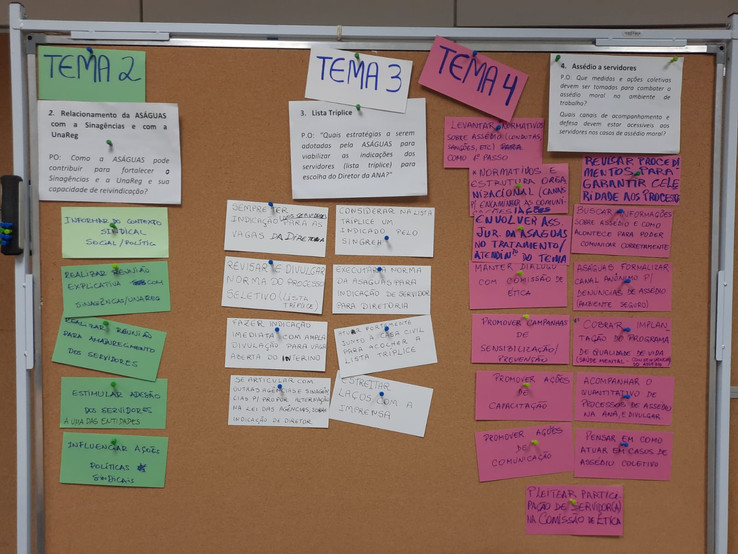 TEMA 2
2. Relacionamento da ASÁGUAS
com a Sinagências e com a
UnaReg
PO: Como a ASÁGUAS pode
contribuir para fortalecer o
Sinagências e a UnaReg e sua
capacidade de reivindicação?
INFORMAR DO CONTEXTO
SINDICAL
SOCIAL/POLÍTIC
REALIZAR REUNIÃO
EXPLICATIVA COM
SINAGÊNCIAS/UNAREG
REUNIÃO
PARA
DOS SERVIDORES
ESTIMULAR ADESÃO
DOS SERVIDORES
A UMA DAS ENTIDADES
INFLUENCIAR AÇÕES
POLÍTICAS
SINDICAIS
TEMA 3
3. Lista Tríplice
P.O: "Quais estratégias a serem
adotadas pela ASÁGUAS para
viabilizar as indicações dos
servidores (lista tríplice) para
escolha do Diretor da ANA?"
SEMPRE TER
INDICAÇÃO PARA AS
VAGAS DA DIRETORIA
REVISAR E DIVULGAR
NORMA DO PROCESSO
SELETIVO (LISTA
TRÍPLICE)
FAZER INDICAÇÃO
IMEDIATA COM AMPLA
DIVULGAÇÃO PARA VAGA
ABERTA DO INTERINO
SE ARTICULAR COM
OUTRAS AGÊNCIAS E SINAGÊN
CIAS P/ PROPOR ALTERAÇÃO
NA LEI DAS AGÊNCIAS, SOBRE
INDICAÇÃO DE DIRETOR
CONSIDERAR NA LISTA
TRÍPLICE UM
INDICADO PELO
SINGREH
EXECUTAR A NORMA
DA ASÁGUAS PARA
INDICAÇÃO DE SERVIDOR
PARA DIRETORIA
ATUAR FORTEMENTE
JUNTO A CASA CIVIL
PARA ACOLHER A
LISTA TRÍPLICE
ESTREITAR
LAÇOS COM A
IMPRENSA
TEMA 4
4. Assédio a servidores
P.O: Que medidas e ações coletivas
devem ser tomadas para combater o
assédio moral no ambiente de
trabalho?
Quais canais de acompanhamento e
defesa devem estar acessíveis aos
servidores nos casos de assédio moral?
LEVANTAR NORMATIVOS
SOBRE ASSÉDIO (CONDUTAS,
SANÇÕES, ETC)
COMO 1º PASSO
NORMATIVOS E
ESTRUTURA ORGA
NIZACIONAL (CANAIS
P/ ENCAMINHAR AS COMUNI-
CAÇÕES
ENVOLVER ASS.
JUR. DA ASAGUAS
NO TRATAMENTO/
ATENDIMTO DO TEMA
MANTER DIÁLOGO
COM COMISSÃO DE
ÉTICA
PROMOVER CAMPANHAS
DE
SENSIBILIZAÇÃO/
PREVENÇÃO
PROMOVER AÇÕES
DE
CAPACITAÇÃO
PROMOVER AÇÕES
DE
COMUNICAÇÃO
REVISAR PROCEDI
MENTOS PARA
GARANTIR CELE
RIDADE AOS PROCESSOS
BUSCAR INFORMAÇÕES
SOBRE ASSÉDIO E COMO
ACONTECE PARA PODER
COMUNICAR CORRETAMENTE
ASÁGUAS FORMALIZAR
CANAL ANÔNIMO P/
DENÚNCIAS DE ASSÉDIO
(AMBIENTE SEGURO)
COBRAR IMPLAN
TAÇÃO DO PROGRAMA
DE QUALIDADE DE VIDA
(SAÚDE MENTAL-
ACOMPANHAR O
QUANTITATIVO DE
PROCESSOS DE ASSÉDIO
NA ANA, E DIVULGAR.
PENSAR EM COMO
ATUAR EM CASOS DE
ASSÉDIO COLETIVO
PLEITEAR PARTICI-
PAÇÃO DE SERVIDOR(A)
NA COMISSÃO DE ÉTICA